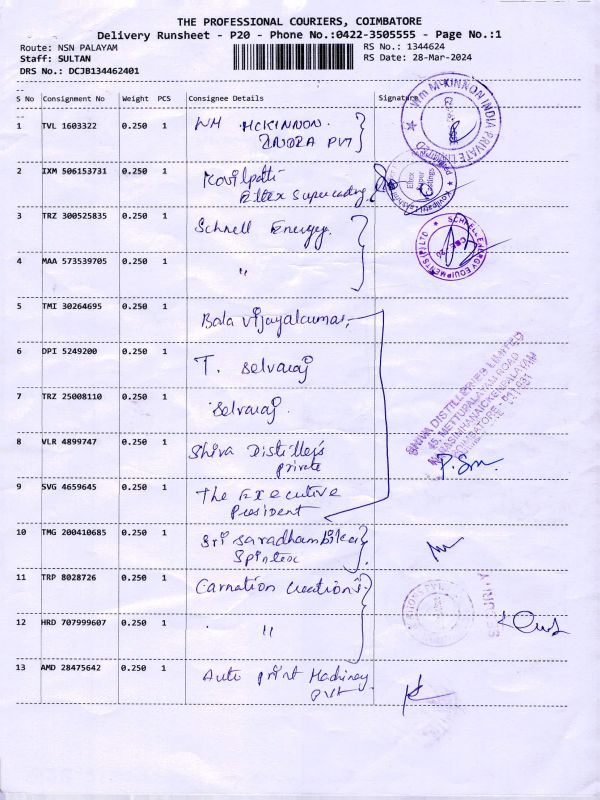 THE PROFESSIONAL COURIERS, COIMBATORE
Delivery Runsheet - P20 - Phone No.:0422-3505555 - Page No.:1
Route: NSN PALAYAM
RS No.: 1344624
Staff: SULTAN
RS Date: 28-Mar-2024
DRS No.: DCJB134462401
S No Consignment No Weight PCS Consignee Details Signature
1 TVL 1603322 0.250 1 WM MCKINNON
INDIA PVT
Wm McKINNON INDIA PRIVATE LIMITED
2 IXM 506153731 0.250 1 Kovilpatti
Eltex Supercasting
Eltex
Super
Castings
3 TRZ 300525835 0.250 1 Schnell Energy
SCHNELL ENERGY EQUIPMENTS (P) LTD
4 MAA 573539705 0.250 1 "
5 TMI 30264695 0.250 1 Bala Vijayakumar
6 DPI 5249200 0.250 1 T. Selvaraj
7 TRZ 25008110 0.250 1 Selvaraj
SHIVA DISTILLERIES LIMITED
METTUPALAYAM ROAD
NARASIMHANAICKENPALAYAM
COIMBATORE - 641 031
8 VLR 4899747 0.250 1 Shiva Distillers
private
9 SVG 4659645 0.250 1 The Executive
President
10 TMG 200410685 0.250 1 Sri Saradhambikai
Spintex
11 TRP 8028726 0.250 1 Carnation Creations
12 HRD 707999607 0.250 1 "
SECURITY
13 AMD 28475642 0.250 1 Auto print Machinery
PVT